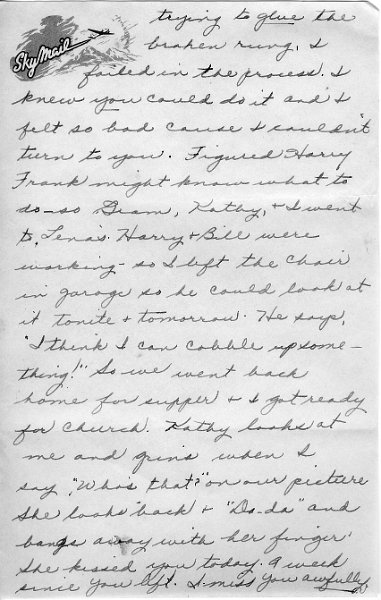 Sky Mail
trying to glue the
broken rung, I
failed in the process. I
knew you could do it and I
felt so bad cause I couldn't
turn to you. Figured Harry
Frank might know what to
do - so Gram, Kathy, & I went
to Lena's. Harry & Bill were
working - so I left the chair
in garage so he could look at
it tonite & tomorrow. He says,
"I think I can cobble up some-
thing!" So we went back
home for supper & I got ready
for Church. Kathy looks at
me and grins when I
say, "Who's that?" on our picture
She looks back & "Da-da" and
bangs away with her finger.
She kissed you today. A week
since you left. I miss you awfully